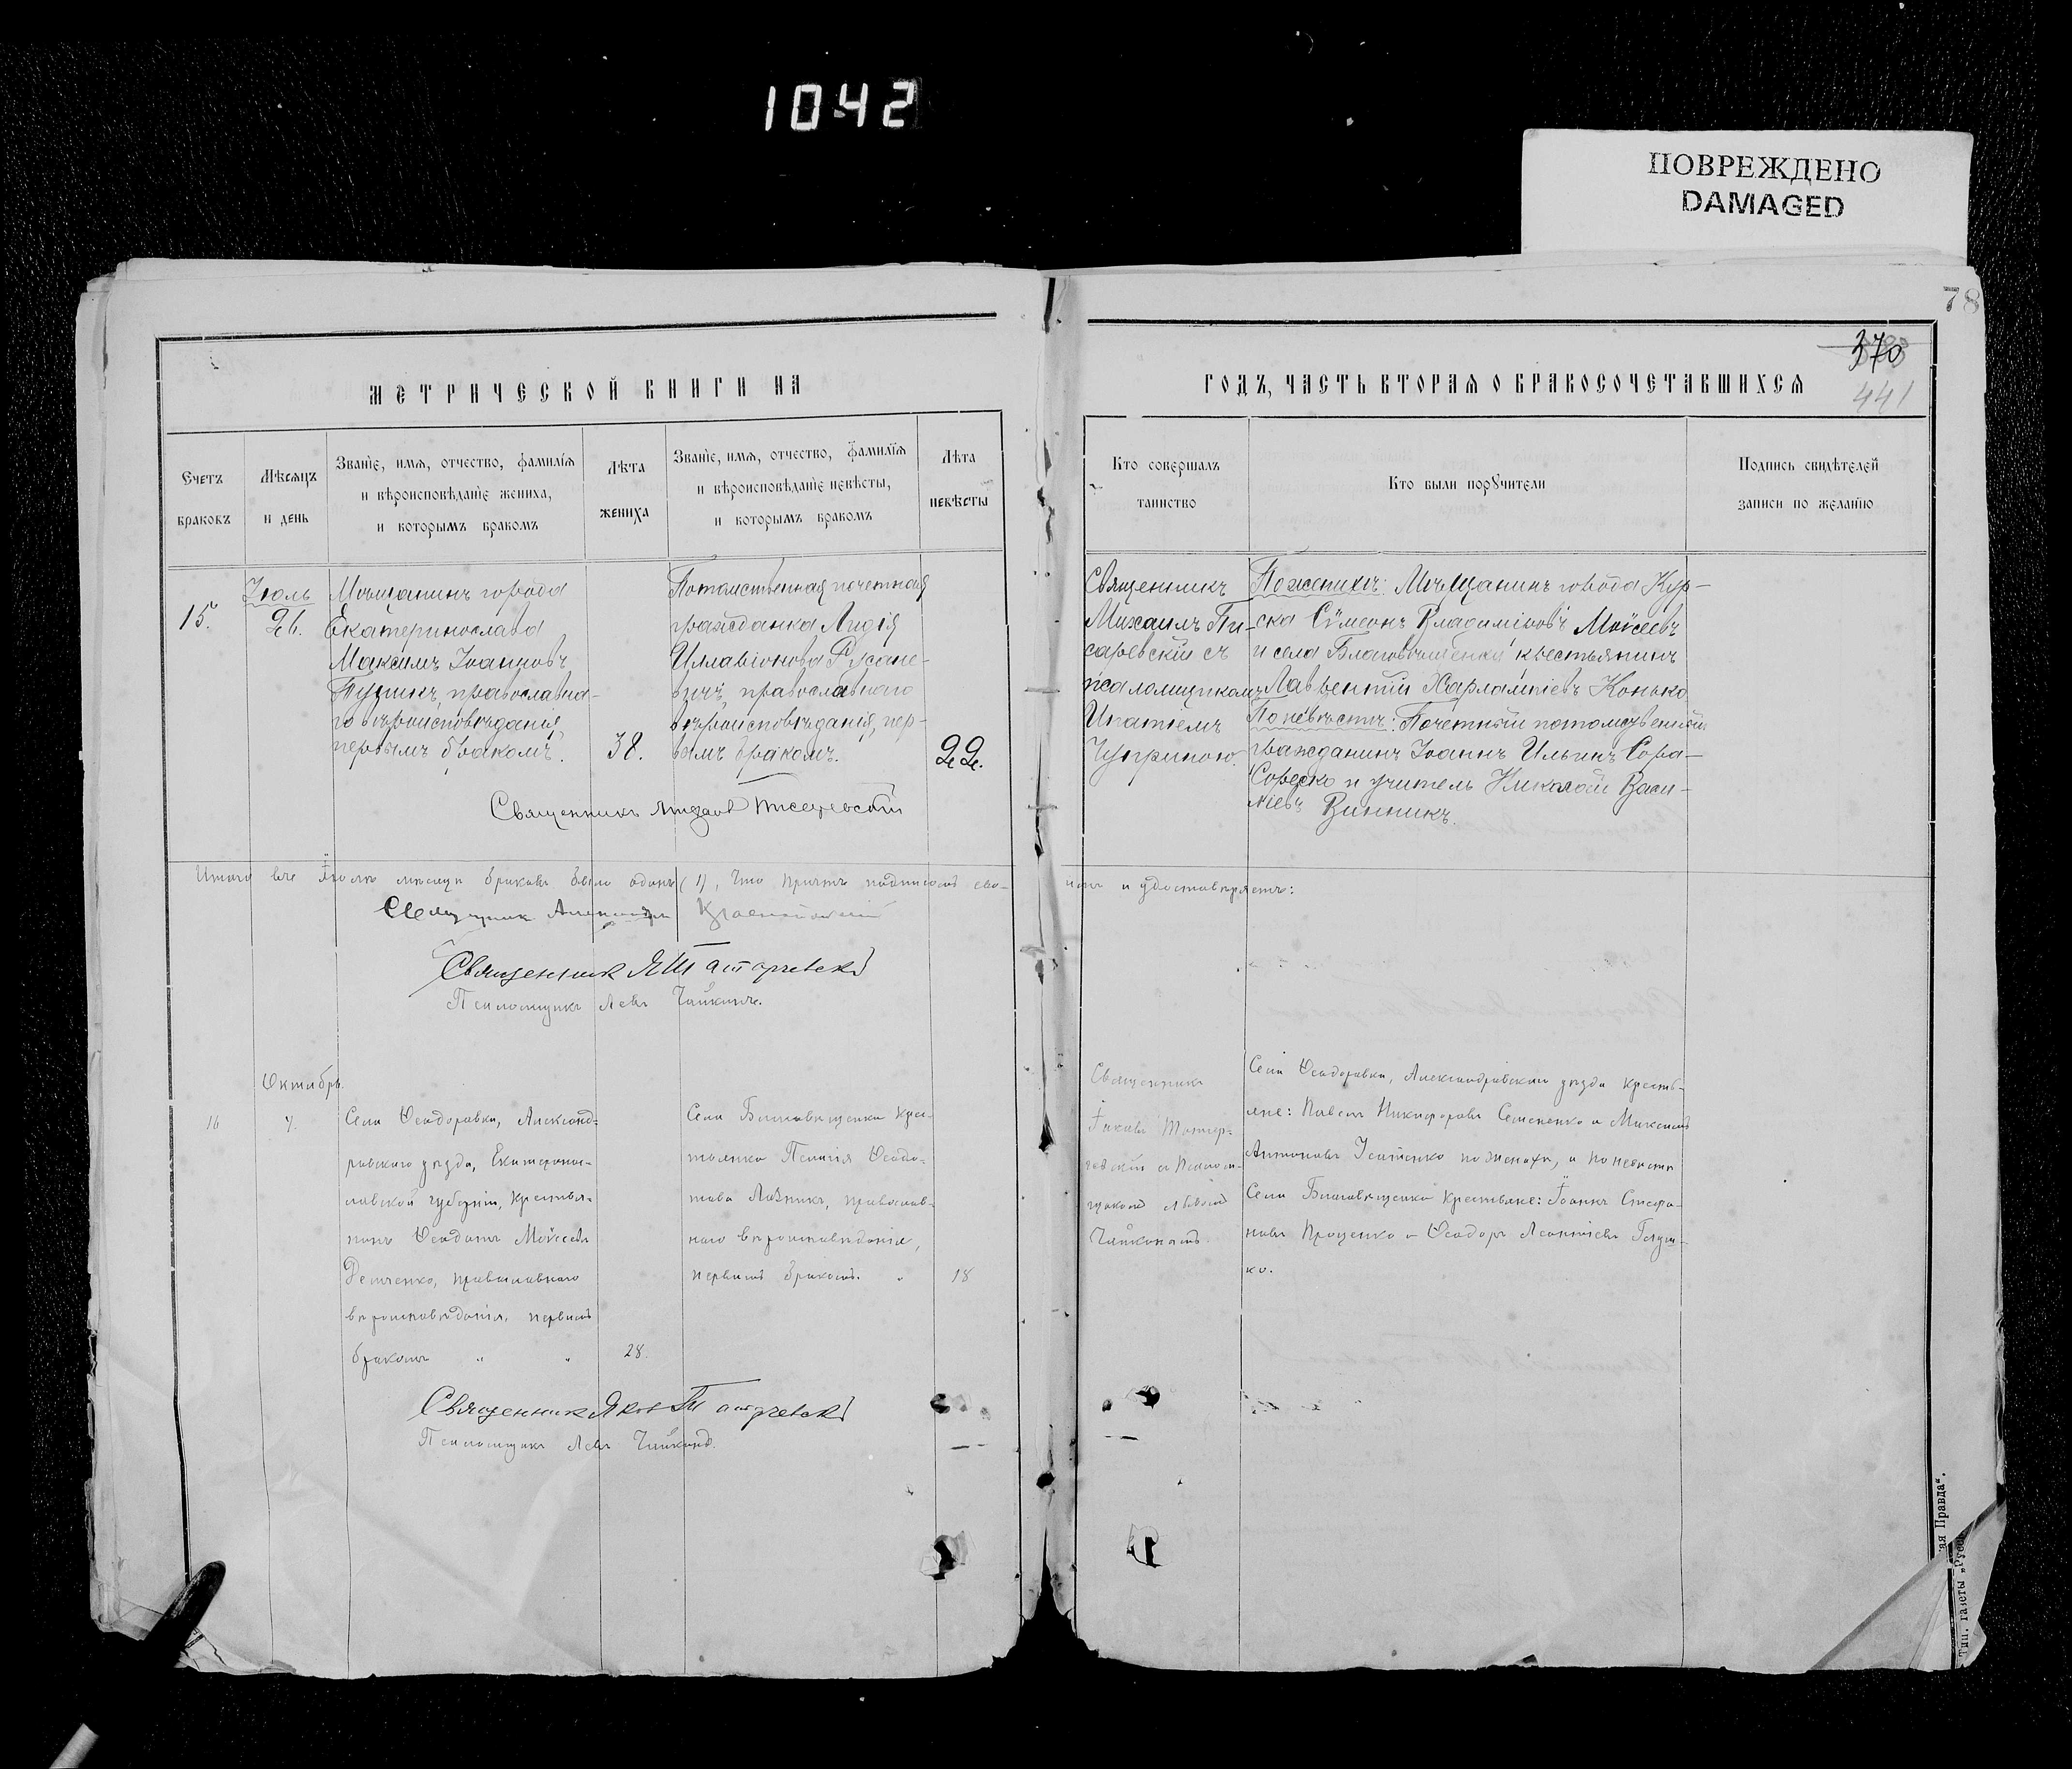 1042
ПОВРЕЖДЕНО
DAMAGED
78
370
441
МЕТРИЧЕСКОЙ КНИГИ НА
ГОДЪ, ЧАСТЬ ВТОРАЯ О БРАКОСОЧЕТАВШИХСЯ
Счетъ
браковъ
Мѣсяцъ
и день
Званіе, имя, отчество, фамилія
и вѣроисповѣданіе жениха,
и которымъ бракомъ
Лѣта
жениха
Званіе, имя, отчество, фамилія
и вѣроисповѣданіе невѣсты,
и которымъ бракомъ
Лѣта
невѣсты
Кто совершалъ
таинство
Кто были поручители
Подпись свидѣтелей
записи по желанію
15.
Іюль
26.
Мѣщанинъ города
Екатеринослава
Максимъ Іоанновъ
православна-
го вѣроисповѣданія,
первымъ бракомъ.
38.
Потомственная почетная
гражданка Лидія
Илларіонова Русане-
вичъ, православнаго
вѣроисповѣданія, пер-
вымъ бракомъ.
22.
Священникъ
Михаилъ Пи-
саревскій съ
псаломщикомъ
Ипатіемъ
Чуприною.
По женихѣ: Мѣщанинъ города Кур-
ска Сѵмеонъ Владиміровъ Моѵсеевъ
и села Благовѣщенки крестьянинъ
Лаврентій Харлампіевъ Конько
По невѣстѣ: Почетный потомственный
гражданинъ Іоаннъ Ильинъ Сора-
и учитель Николай Васи-
ліевъ Винникъ.
Священникъ Михаилъ Писаревскій
Итого въ Іюлѣ мѣсяцѣ браковъ было одинъ (1), что причтъ подписомъ сво-
имъ и удостовѣряетъ:
Священникъ Александръ
Священникъ
Псаломщикъ Левъ Чайкинъ.
16
Октябрь.
7.
Села Ѳеодоровки, Александ-
ровскаго уѣзда, Екатеринос-
лавской губерніи, крестья-
нинъ Ѳеодотъ Моѵсеевъ
Демченко, православнаго
вѣроисповѣданія, первымъ
бракомъ " "
28.
Села Благовѣщенки крес-
тьянка Пелагія Ѳеодо-
това Лазникъ, православ-
наго вѣроисповѣданія,
первымъ бракомъ. "
18
Священникъ
Іаковъ
съ Псалом-
щикомъ Львомъ
Села Ѳеодоровки, Александровскаго уѣзда кресть-
яне: Павелъ Никифоровъ Семененко и Максимъ
Антоновъ Усатенко по женихѣ, а по невѣстѣ
Села Благовѣщенки крестьяне: Іоаннъ Стефа-
новъ Проценко и Ѳеодоръ Леонтіевъ Галуш-
ко.
Священникъ Яковъ
Псаломщикъ Левъ Чайкинъ.
Тип. газеты „Русская Правда“.